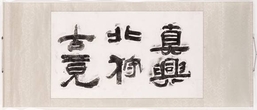 眞興
北狩
古竟